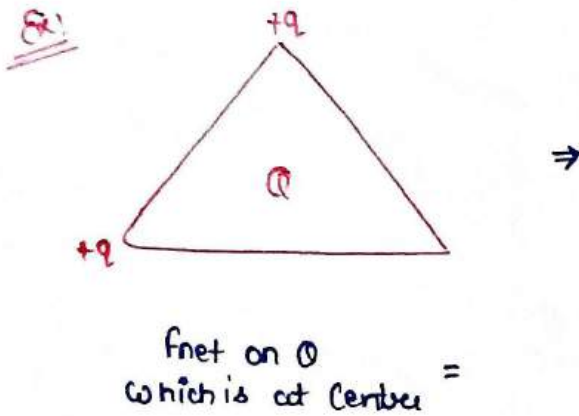 Ex:
+q
Q
⇒
+q
Fnet on Q
which is at Centre =